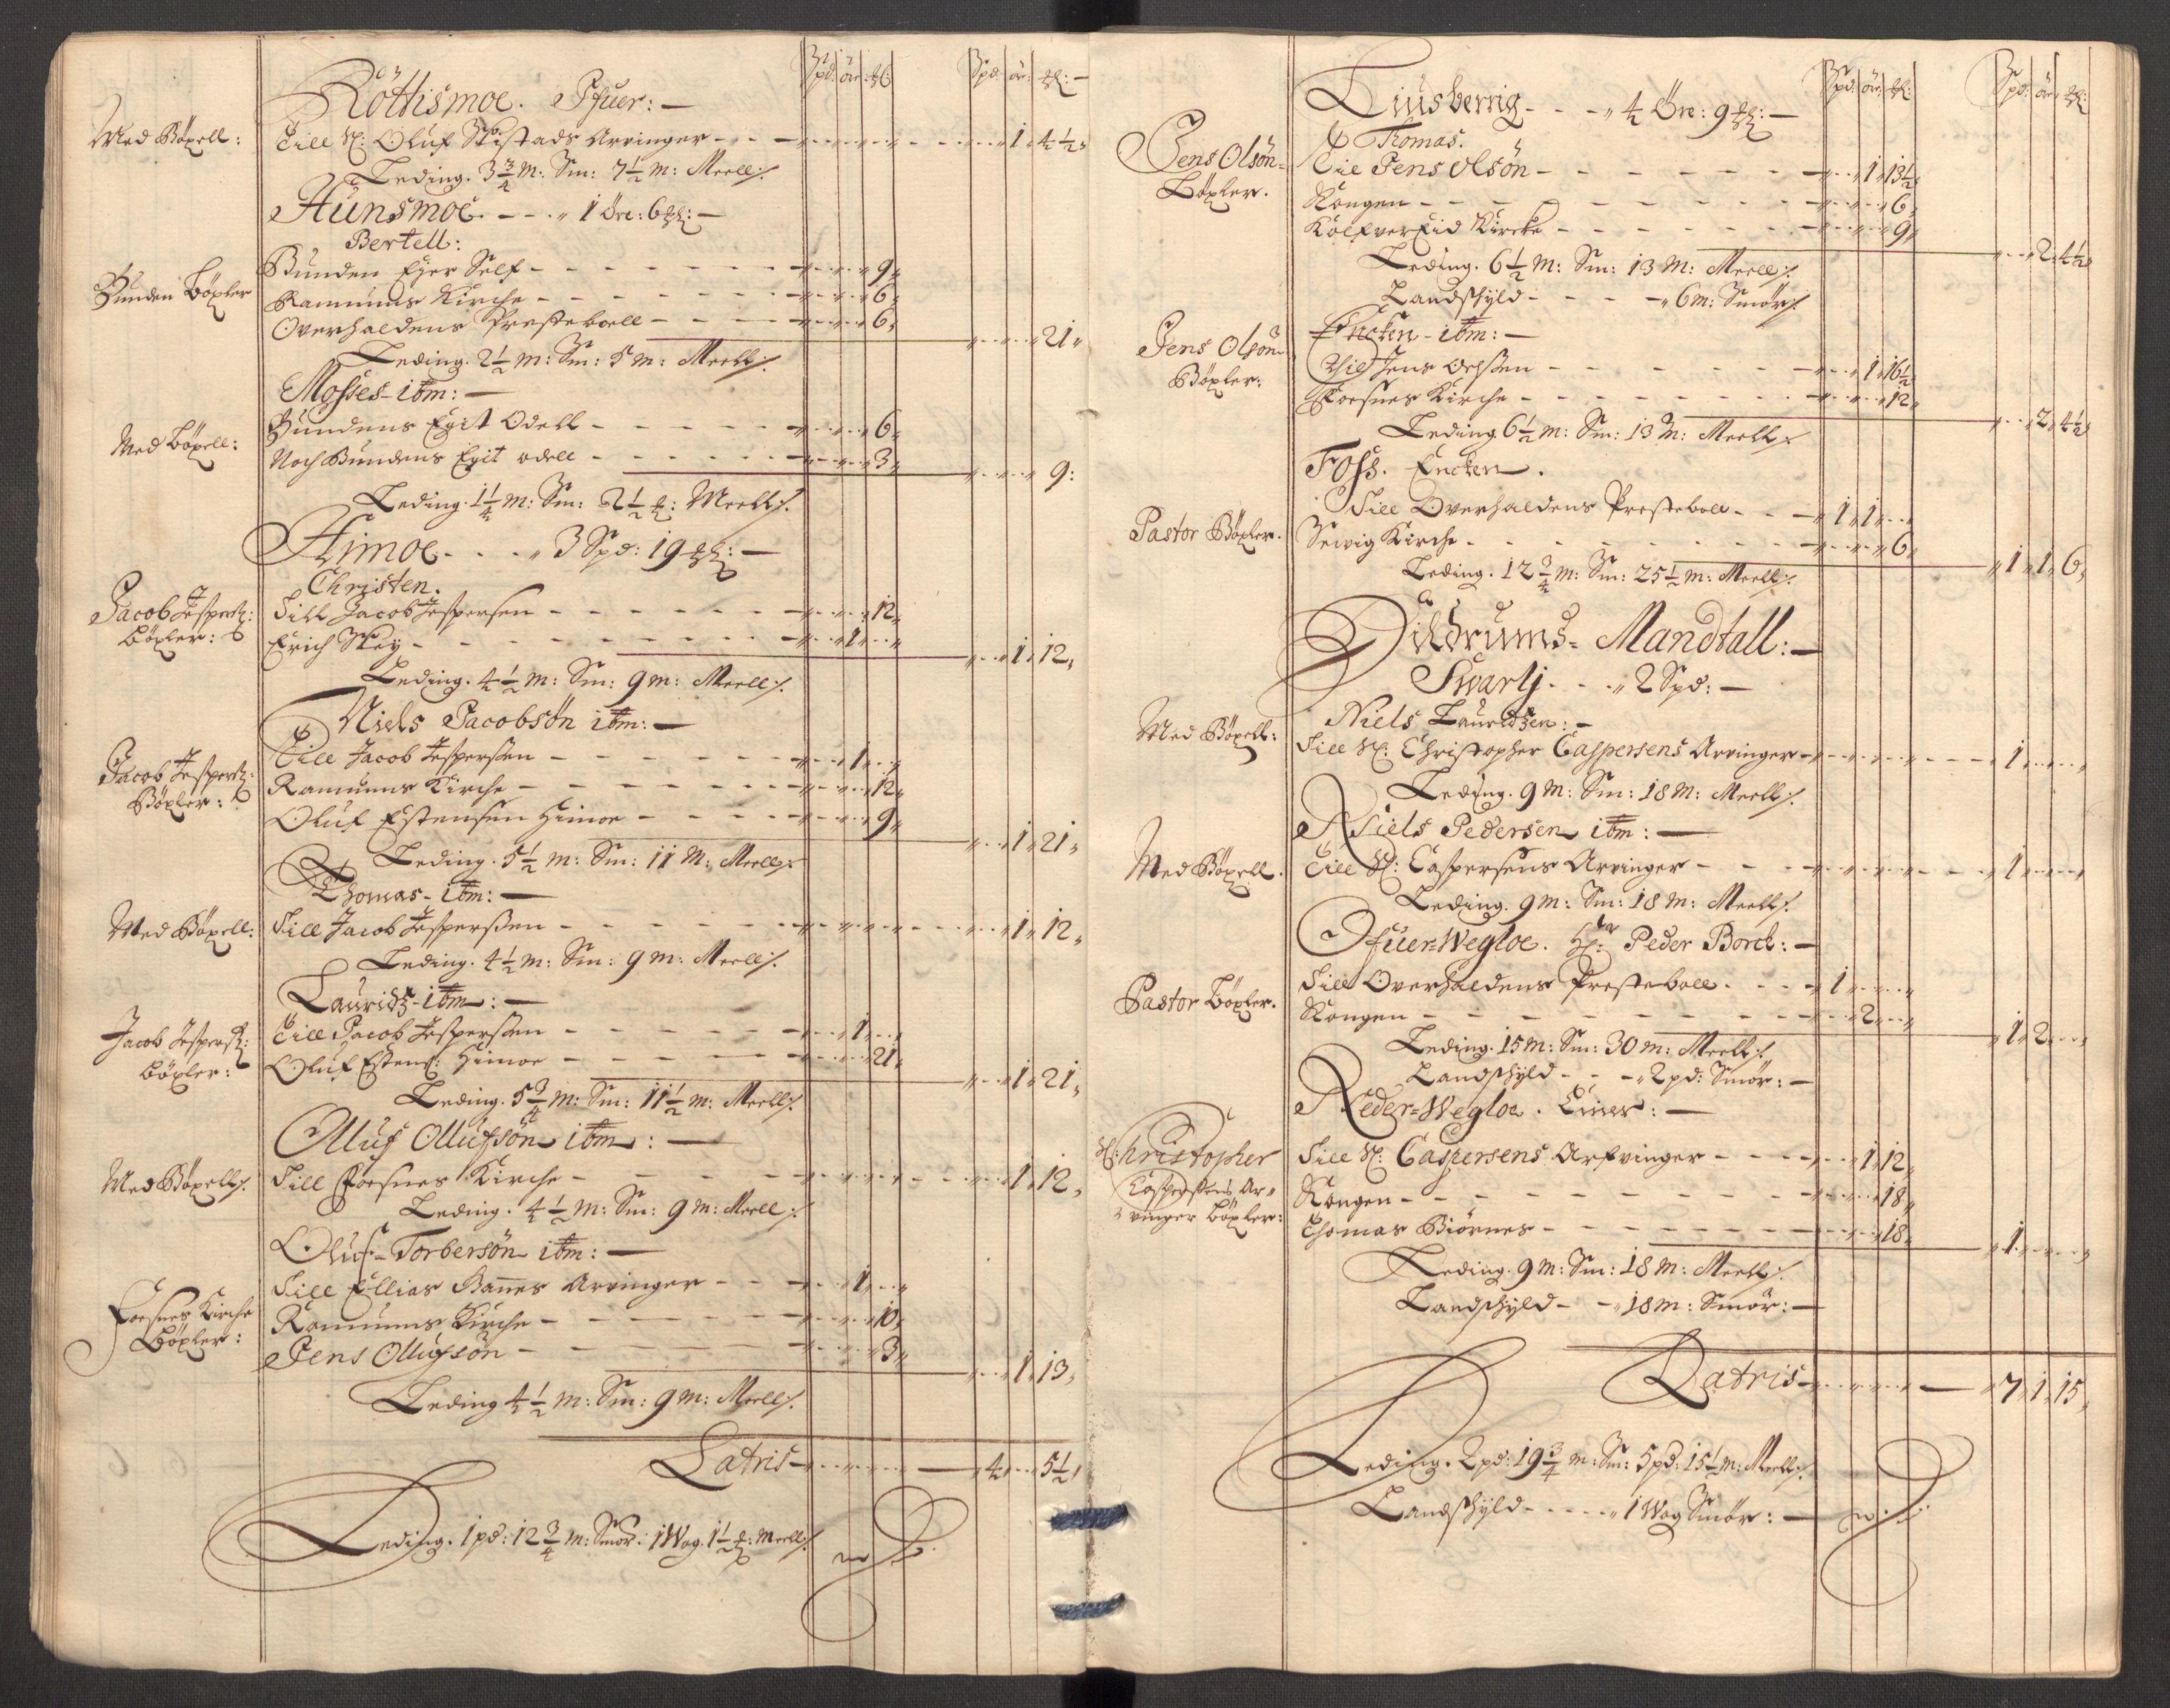 Spd: ör: Spd: ör:
Röttismoe. Pfuer:
Med Böxell: Till Sl: Oluf Skistads Arvinger - - - 1. 4½
Leding. 3¾ m: Sm: 7½ m: Meell:/.
Hunsmoe. - - - 1 Öre: 6
Bertell:
Bunden Böxler Bunden Eÿer Self - - - 9
Ramnums Kirche - - - 6
Overhaldens Presteboell - - - 6
21
Leding. 2½ m: Sm: 5 m: Meell:/.
Mosses - itm:
Med Böxell: Bundens Egit Odell - - - 6
Noch Bundens Egit odell - - - 3
9:
Leding. 1¼ m: Sm: 2½ Meell:/.
Himoe. - - - 3 Spd: 19
Christen.
Jacob Jespers: Böxler: Till Jacob Jespersen - - - 12
Erich Skey - - - 1
1. 12
Leding. 4½ m: Sm: 9 m: Meell:/.
Niels Jacobsön itm:
Jacob Jespers: Böxler: Till Jacob Jesperssen - - - 1
Ramnums Kirche - - - 12
Oluf Estensen Himoe - - - 9
1. 21
Leding. 5½ m: Sm: 11 m: Meell:/.
Thomas - itm:
Med Böxell: Till Jacob Jesperssen - - - 1. 12
Leding. 4½ m: Sm: 9 m: Meell:/.
Lauridz - itm:
Jacob Jespers: Böxler: Till Jacob Jesperssen - - - 1
Oluf Estens: Himoe - - - 21
1. 21
Leding. 5¾ m: Sm: 11½ m: Meell:/.
Olluf Ollufsön itm:
Med Böxell:/. Till Foesnes Kirche - - - 1. 12
Leding. 4½ m: Sm: 9 m: Meell:/.
Oluf Torbersön itm:
Foesnes Kirche Böxler: Till Ellias Bannes Arvinger - - - 1
Ramnums Kirche - - - 10
Jens Ollufsön - - - 3
1. 13
Leding 4½ m: Sm: 9 m: Meell:/.
Latris - - - 4. 5½
Leding. 1 pd: 12¾ m: Smör: 1 Wog. 1½ Meell:/.
Spd: ör: Spd: ör:
Tiusberrig - - - 4 Öre: 9
Thomas.
Jens Olsön Böxler. Till Jens Olsön - - - 1. 13½
Kongen - - - 6
Kolfvereid Kircke - - - 9
2. 4½
Leding. 6½ m: Sm: 13 m: Meell:/.
Landschÿld - - - 6 m: Smör:/.
Encken - itm:
Jens Olsön Böxler: Till Jens Olssen - - - 1. 16½
Foesnes Kirche - - - 12
2. 4½
Leding 6½ m: Sm: 13 m: Meell:/.
Foss. Encken.
Pastor Böxler. Till Overhaldens Presteboell - - - 1. 1
Servig Kirche - - - 6
1. 1. 6
Leding. 12¾ m: Sm: 25½ m: Meell:/.
Dildrums - Mandtall:
Swarlj - - - 2 Spd:
Niels Lauridzen:
Med Böxell: Till Sl: Christopher Caspersens Arvinger - - - 1
Leding. 9 m: Sm: 18 m: Meell:/.
Niels Pedersen itm:
Med Böxell. Till Sl: Caspersens Arvinger - - - 1
Leding. 9 m: Sm: 18 m: Meell:/.
Ofuer-Wegloe. Hr: Peder Borch:
Pastor Böxler. Till Overhaldens Presteboll - - - 1
Kongen - - - 2
1. 2
Leding. 15 m: Sm: 30 m: Meell:/.
Landschÿld - - - 2 pd: Smör:
Neder-Wegloe. Einer:
Sl: Christopher Caspersens Arvinger Böxler: Till Sl: Caspersens Arfvinger - - - 1. 12
Kongen - - - 18
Thomas Biörnes - - - 18
1
Leding. 9 m: Sm: 18 m: Meell:/.
Landschÿld - - 18 m: Smör:
Latris - - - 7. 1. 15
Leding. 2 pd: 19¾ m: Sm: 5 pd: 15½ m: Meell:/.
Landschÿld - - - 1 Wog Smör: